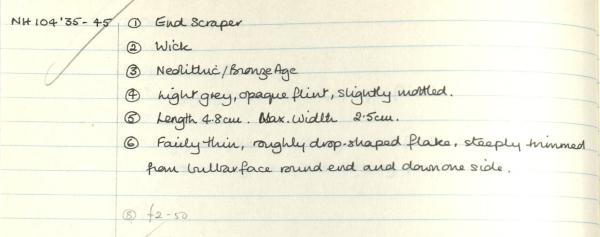 NH104'35-45 ① End Scraper
② Wick
③ Neolithic/Bronze Age
④ Light grey, opaque flint, slightly mottled.
⑤ Length 4.8cm. Max. width 2.5cm.
⑥ Fairly thin, roughly drop-shaped flake, steeply trimmed
from bulbar face round end and down one side.
⑧ £2-50